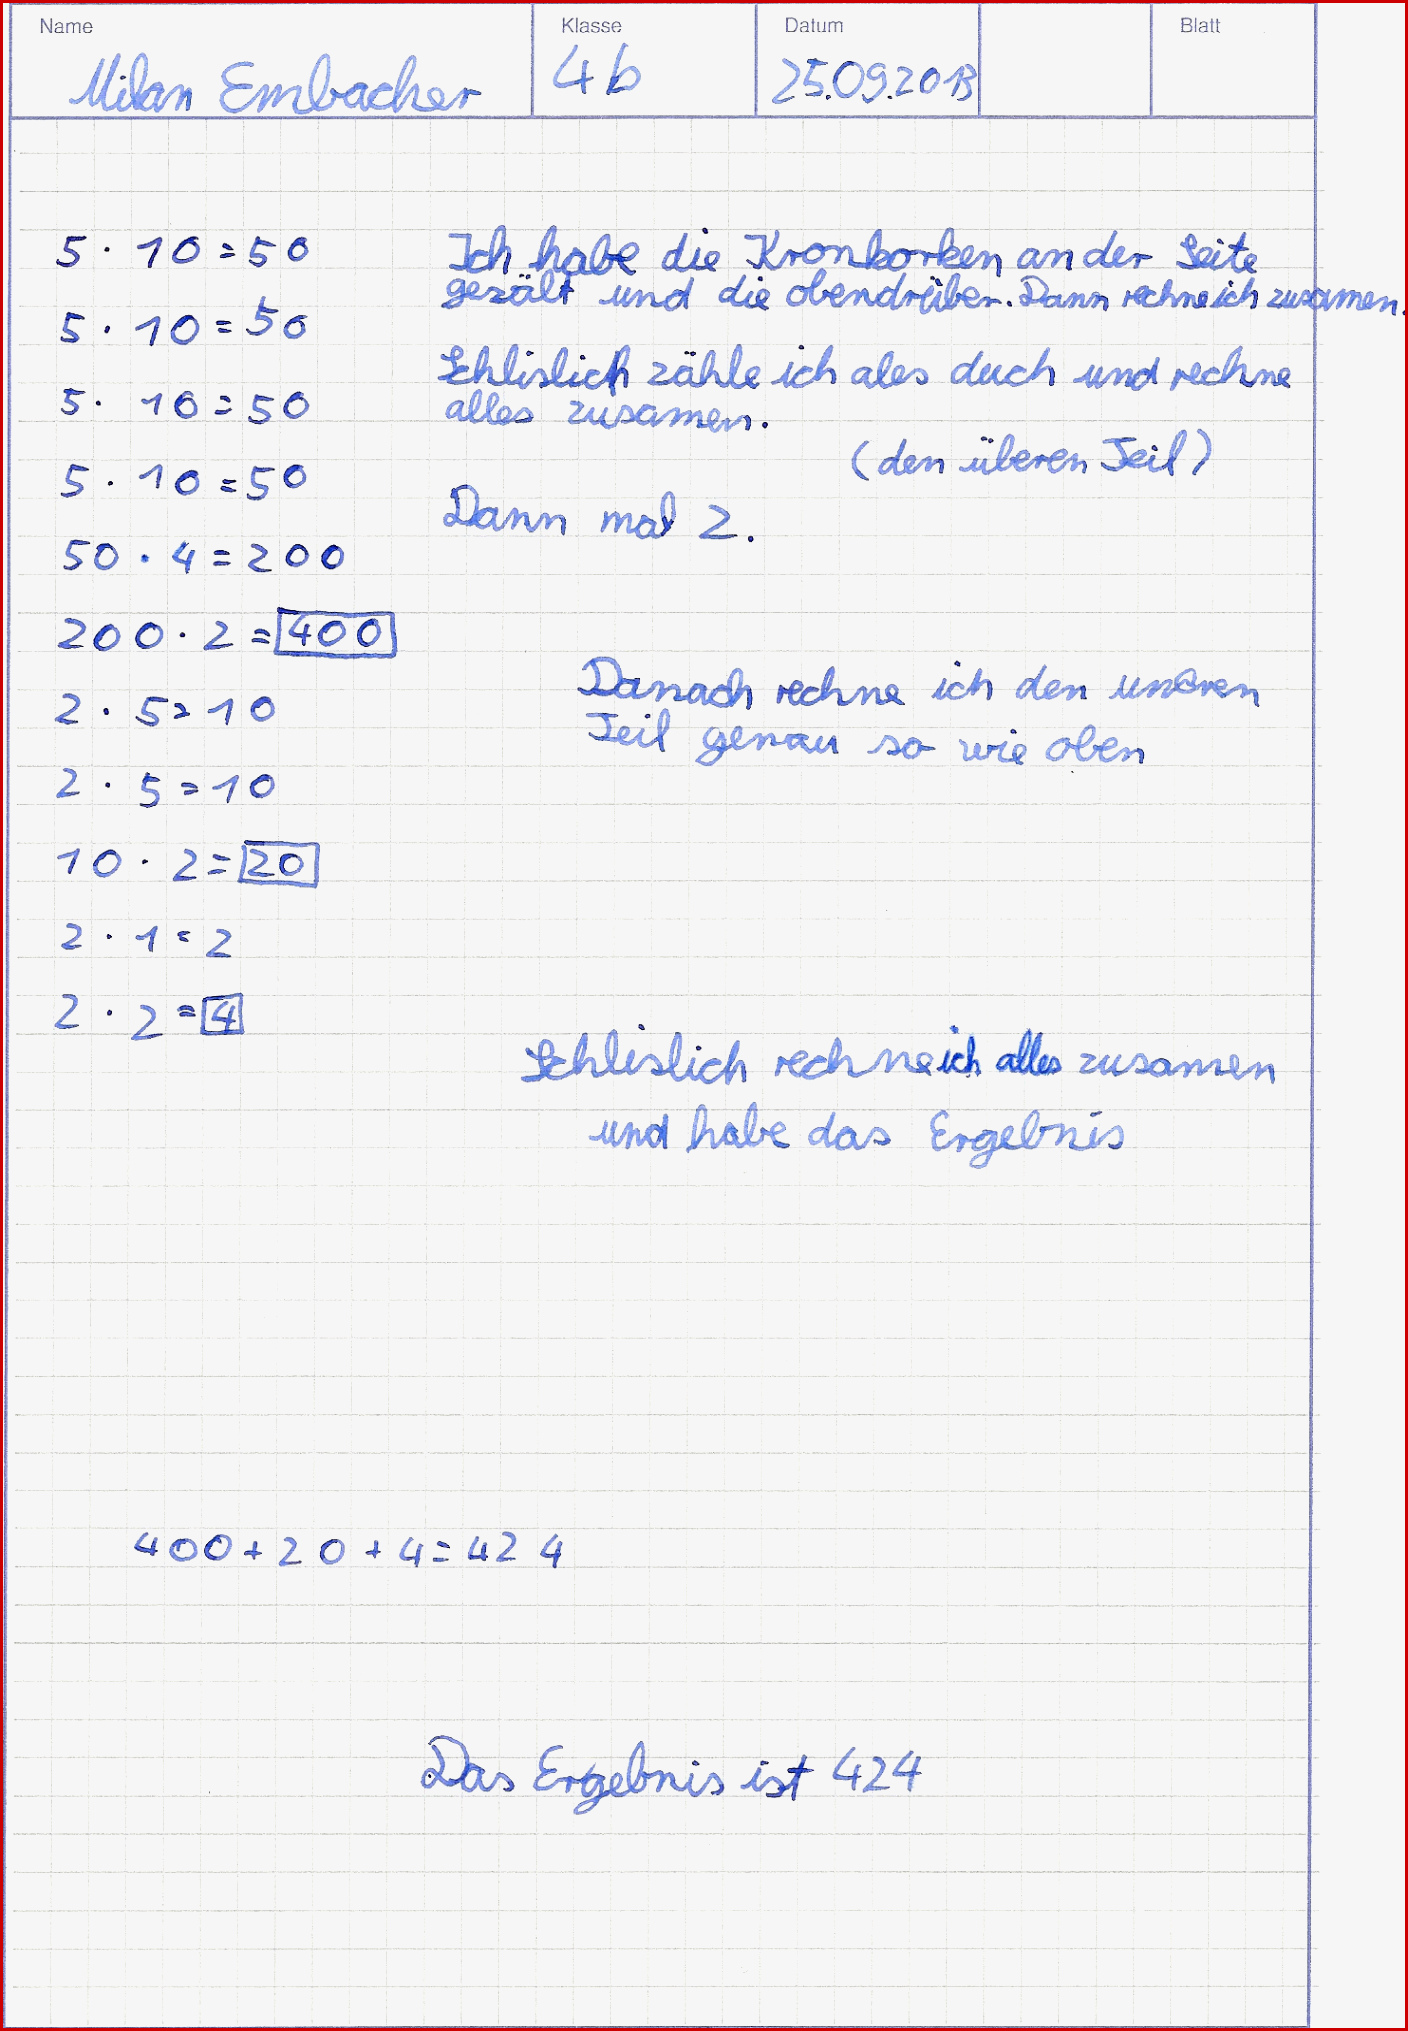 Name Klasse Datum Blatt
Milan Embacher 4b 25.09.2013
5 · 10 = 50
Ich habe die Kronkorken an der Seite
gezält und die obendrüber. Dann rechne ich zusamen.
5 · 10 = 50
Schlislich zähle ich ales duch und rechne
5 · 10 = 50
alles zusamen.
(den überen Teil)
5 · 10 = 50
Dann mal 2.
50 · 4 = 200
200 · 2 = 400
Danach rechne ich den unteren
2 · 5 = 10
Teil genau so wie oben
2 · 5 = 10
10 · 2 = 20
2 · 1 = 2
2 · 2 = 4
Schlislich rechne ich alles zusamen
und habe das Ergebnis
400 + 20 + 4 = 424
Das Ergebnis ist 424